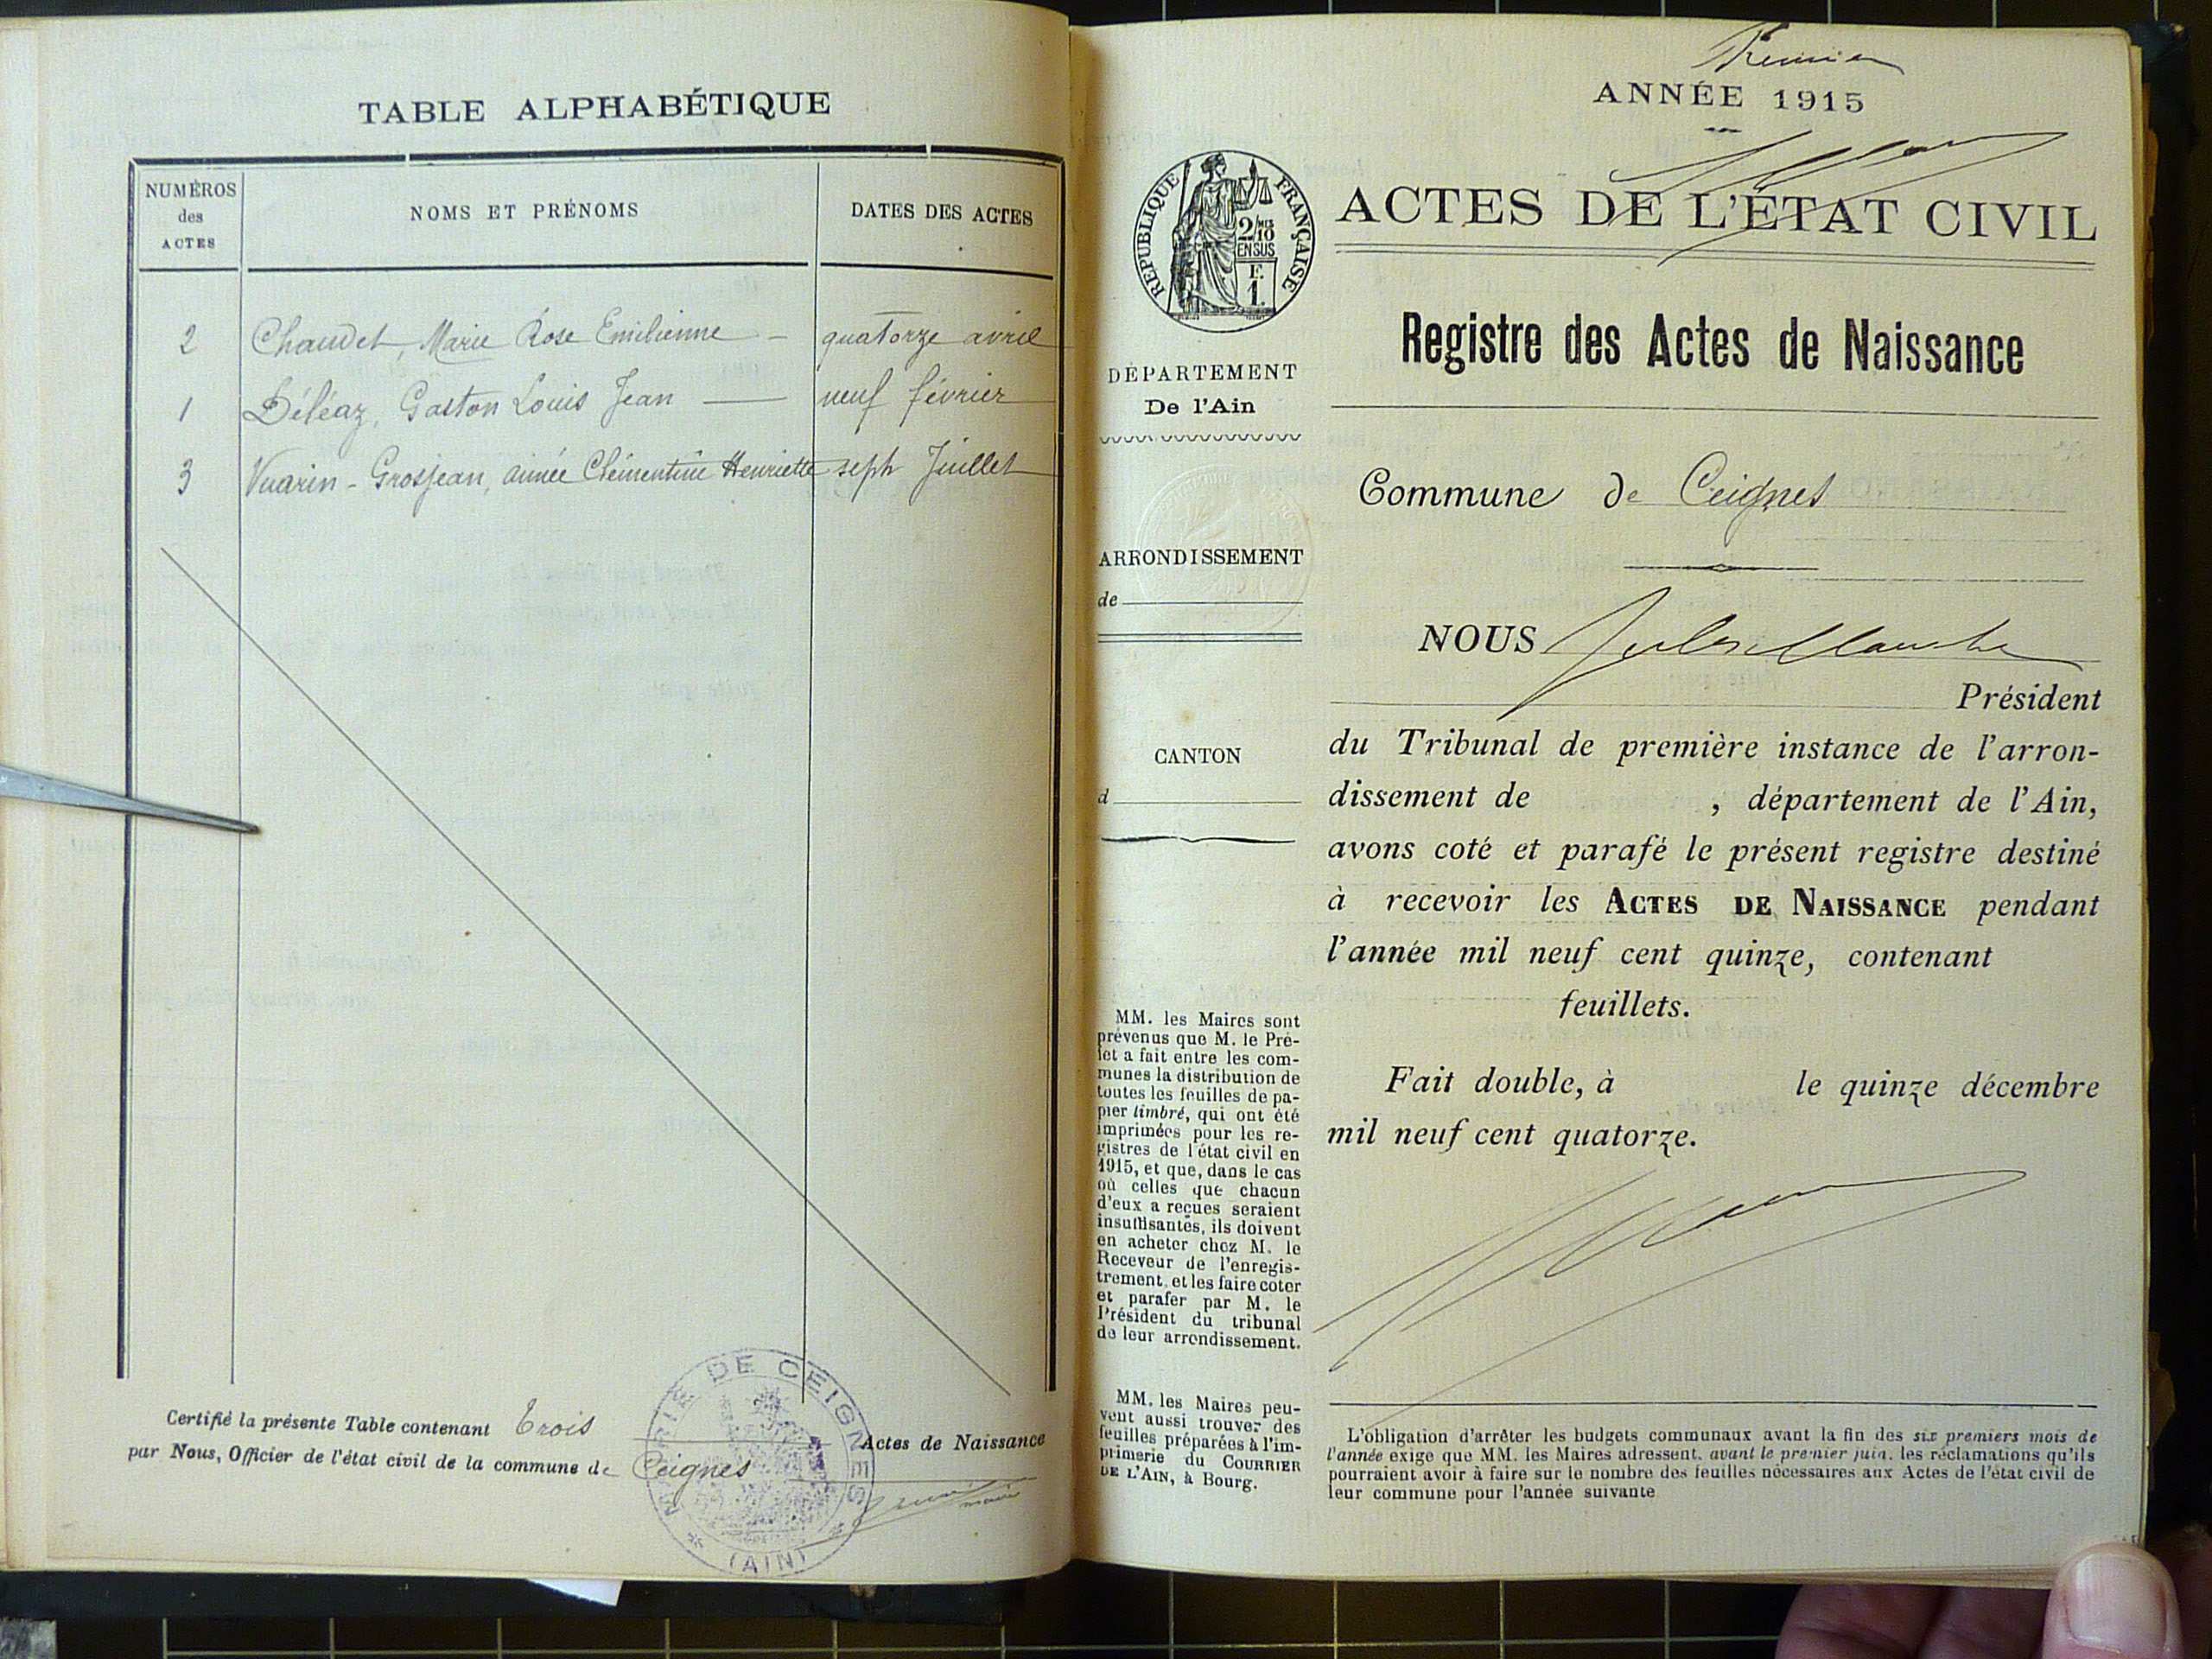 TABLE ALPHABÉTIQUE
NUMÉROS
des
ACTES
NOMS ET PRÉNOMS
DATES DES ACTES
2 Chaudet, Marie Rose Emilienne — quatorze avril
1 Déléaz, Gaston Louis Jean — neuf février
3 Vuarin-Grosjean, aimée Clémentine Henriette seph Juillet
Certifié la présente Table contenant trois Actes de Naissance
par Nous, Officier de l'état civil de la commune de Ceignes
maire
MAIRIE DE CEIGNES
(AIN)
Premier
ANNÉE 1915
RÉPUBLIQUE FRANÇAISE
2/10
EN SUS
F.
1.
ACTES DE L'ÉTAT CIVIL
Registre des Actes de Naissance
DÉPARTEMENT
De l'Ain
Commune de Ceignes
ARRONDISSEMENT
de
CANTON
d
NOUS Jules
Président
du Tribunal de première instance de l'arron-
dissement de , département de l'Ain,
avons coté et parafé le présent registre destiné
à recevoir les ACTES DE NAISSANCE pendant
l'année mil neuf cent quinze, contenant
feuillets.
Fait double, à le quinze décembre
mil neuf cent quatorze.
MM. les Maires sont
prévenus que M. le Pré-
fet a fait entre les com-
munes la distribution de
toutes les feuilles de pa-
pier timbré, qui ont été
imprimées pour les re-
gistres de l'état civil en
1915, et que, dans le cas
où celles que chacun
d'eux a reçues seraient
insuffisantes, ils doivent
en acheter chez M. le
Receveur de l'enregis-
trement, et les faire coter
et parafer par M. le
Président du tribunal
de leur arrondissement.
MM. les Maires peu-
vent aussi trouver des
feuilles préparées à l'im-
primerie du COURRIER
DE L'AIN, à Bourg.
L'obligation d'arrêter les budgets communaux avant la fin des six premiers mois de
l'année exige que MM. les Maires adressent, avant le premier juin, les réclamations qu'ils
pourraient avoir à faire sur le nombre des feuilles nécessaires aux Actes de l'état civil de
leur commune pour l'année suivante